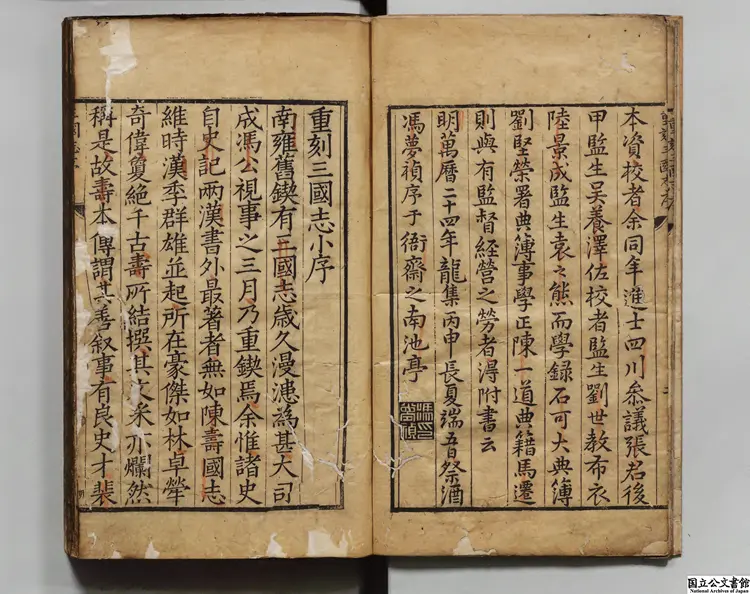 本資校者余同年進士四川叅議張君後
甲監生吴養澤佐校者監生劉世教布衣
陸景成監生袁之熊而學録石可大典簿
劉堅榮署典簿事學正陳一道典籍馬遷
則與有監督經營之勞者淂附書云
明萬曆二十四年龍集丙申長夏端五日祭酒
馮夢禎序于衙齋之南池亭
重刻三國志小序
南雍舊鍥有三國志歲久漫漶為甚大司
成馮公視事之三月乃重鍥焉余惟諸史
自史記兩漢書外最著者無如陳壽國志
維時漢季群雄並起所在豪傑如林卓犖
奇偉夐絶千古壽所結撰其文采亦爛然
稱是故壽本傳謂其善叙事有良史才裴
国立公文書館
National Archives of Japan